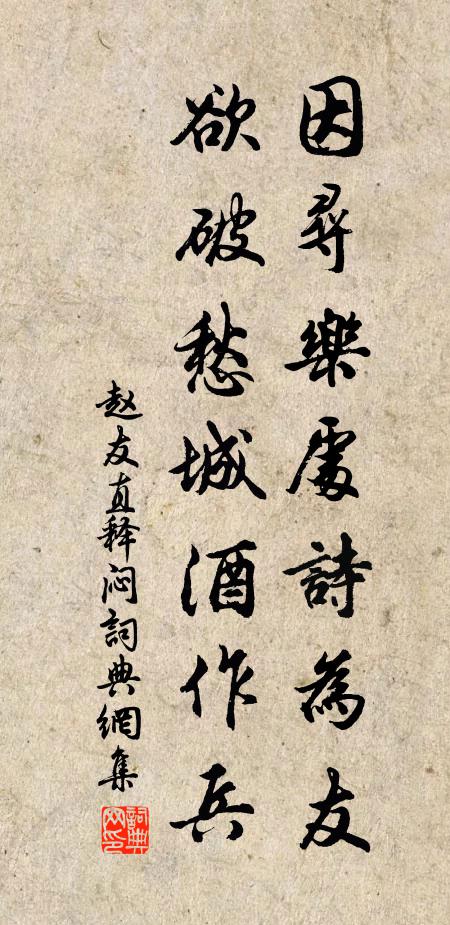 因尋樂處詩為友
欲破愁城酒作兵
赵友直释闷詞典網集
詞典網印